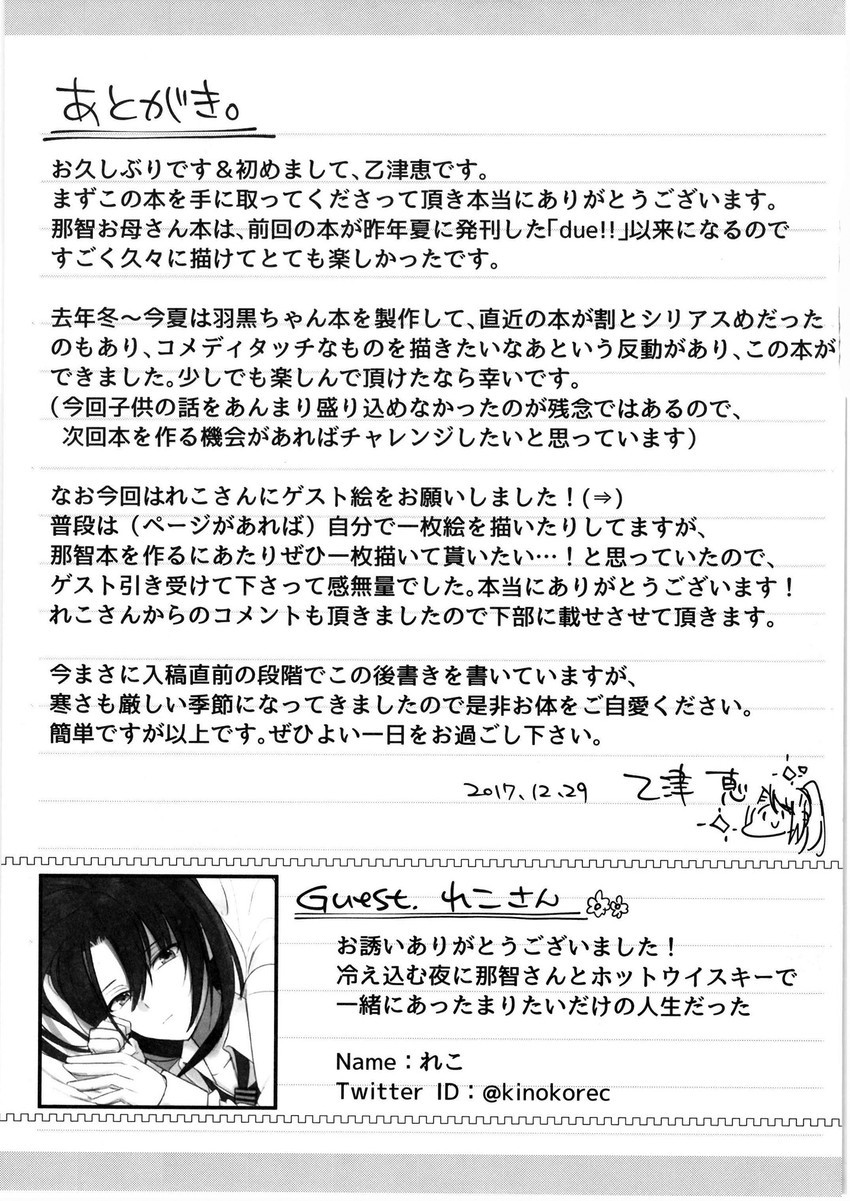 あとがき。
お久しぶりです＆初めまして、乙津恵です。
まずこの本を手に取ってくださって頂き本当にありがとうございます。
那智お母さん本は、前回の本が昨年夏に発刊した「due!!」以来になるので
すごく久々に描けてとても楽しかったです。
去年冬～今夏は羽黒ちゃん本を製作して、直近の本が割とシリアスめだった
のもあり、コメディタッチなものを描きたいなあという反動があり、この本が
できました。少しでも楽しんで頂けたなら幸いです。
（今回子供の話をあんまり盛り込めなかったのが残念ではあるので、
次回本を作る機会があればチャレンジしたいと思っています）
なお今回はれこさんにゲスト絵をお願いしました！(⇒)
普段は（ページがあれば）自分で一枚絵を描いたりしてますが、
那智本を作るにあたりぜひ一枚描いて貰いたい…！と思っていたので、
ゲスト引き受けて下さって感無量でした。本当にありがとうございます！
れこさんからのコメントも頂きましたので下部に載せさせて頂きます。
今まさに入稿直前の段階でこの後書きを書いていますが、
寒さも厳しい季節になってきましたので是非お体をご自愛ください。
簡単ですが以上です。ぜひよい一日をお過ごし下さい。
2017.12.29 乙津 恵
Guest. れこさん
お誘いありがとうございました！
冷え込む夜に那智さんとホットウイスキーで
一緒にあったまりたいだけの人生だった
Name：れこ
Twitter ID：@kinokorec